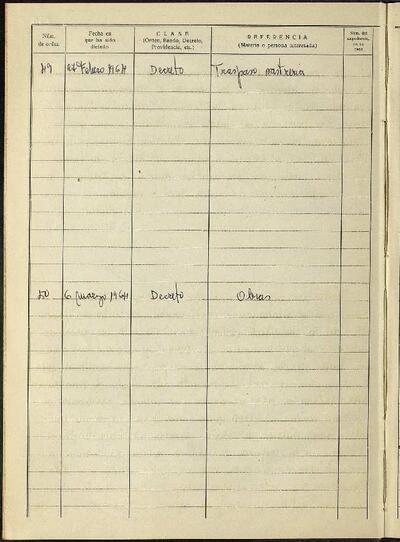 Núm. de orden
Fecha en que ha sido dictado
CLASE
(Orden, Bando, Decreto, Providencia, etc.)
REFERENCIA
(Materia o persona interesada)
Núm. del expediente,
49 27 Febrero 1964 Decreto Traspaso sastrería
50 6 marzo 1964 Decreto Obras